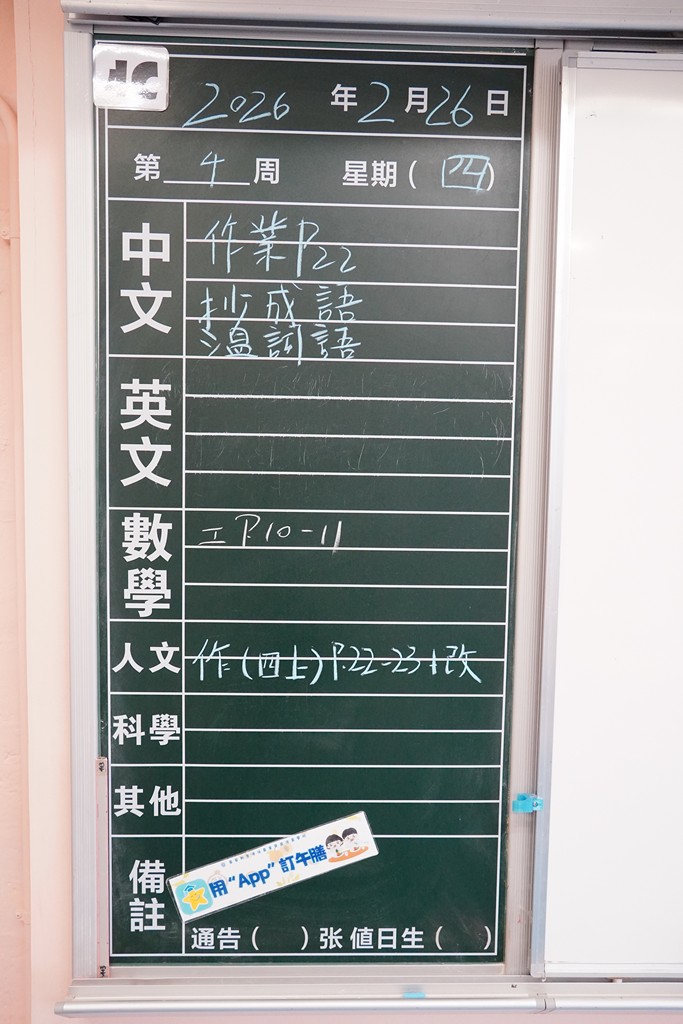 2026 年 2 月 26 日
第 4 周 星期( 四 )
中文
作業P.22
抄成語
溫詞語
英文
數學
工 P.10-11
人文
作(四上)P.22-23+改
科學
其他
備註
用“App”訂午膳
通告( )张 值日生( )